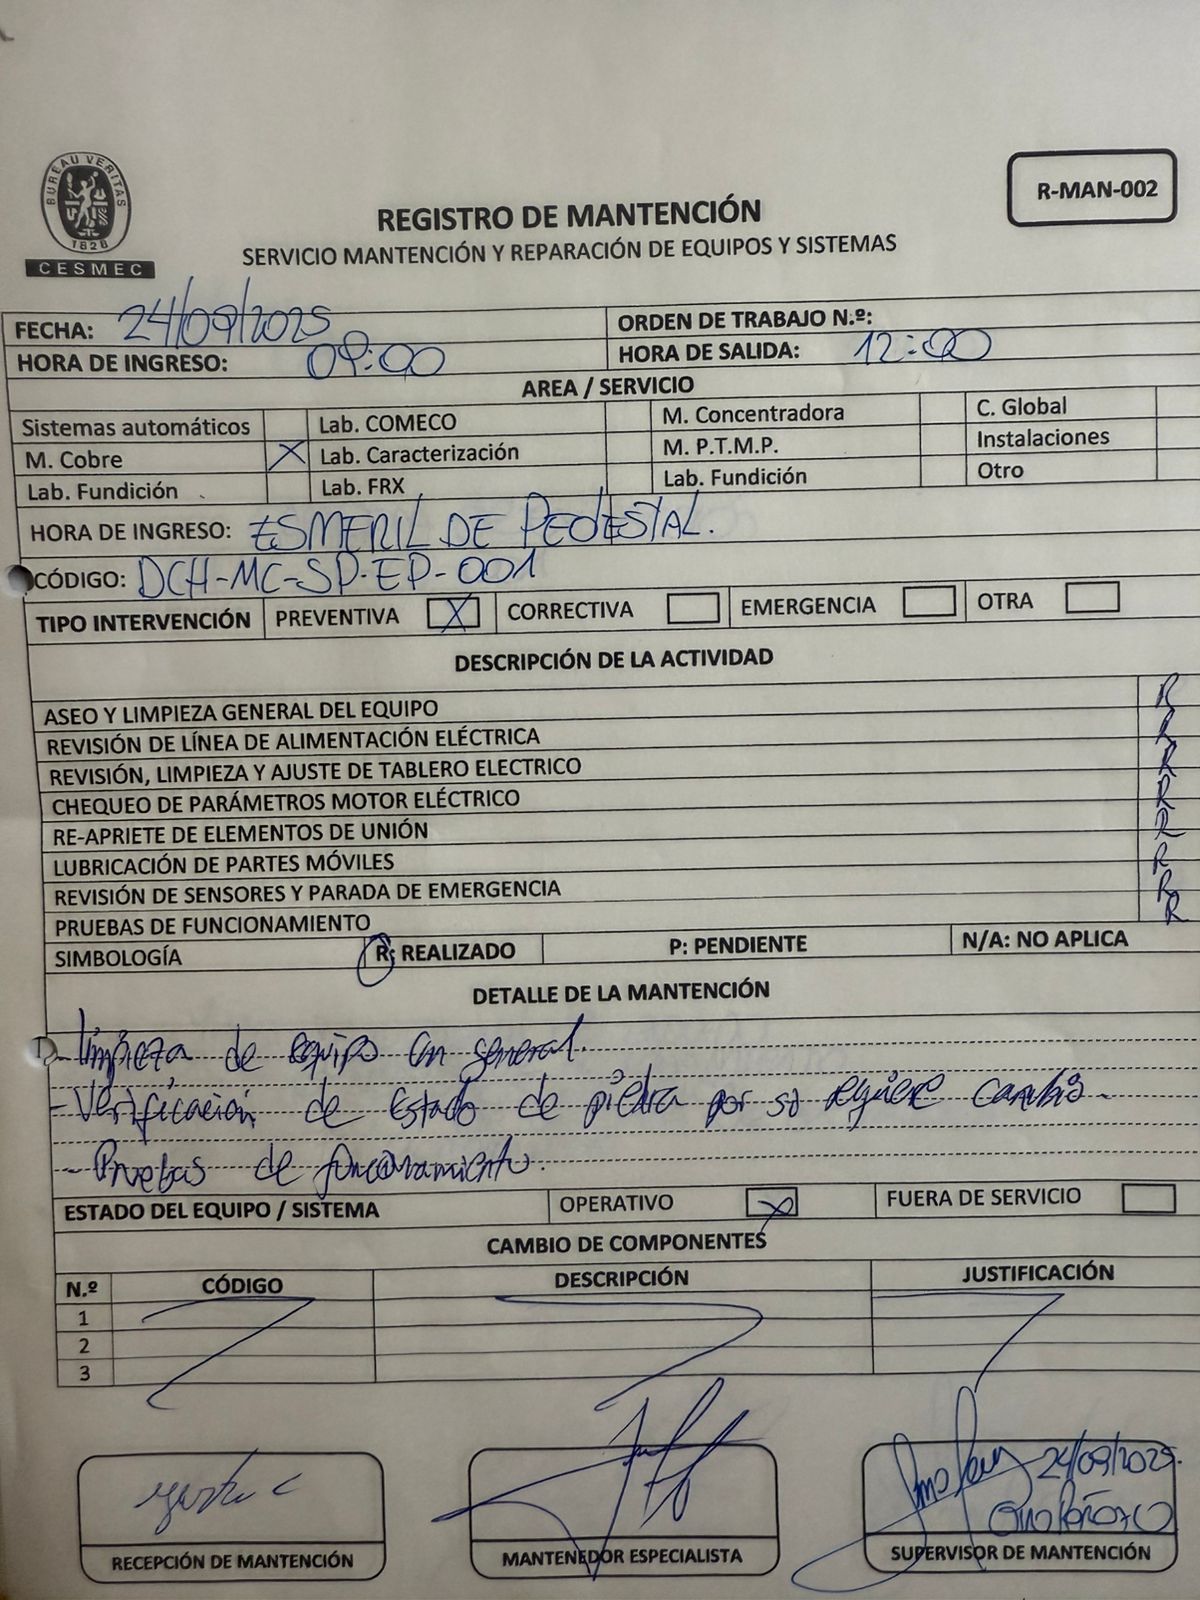 BUREAU VERITAS
1828
CESMEC
R-MAN-002
REGISTRO DE MANTENCIÓN
SERVICIO MANTENCIÓN Y REPARACIÓN DE EQUIPOS Y SISTEMAS
FECHA: 24/09/2025 ORDEN DE TRABAJO N.º:
HORA DE INGRESO: 09:00 HORA DE SALIDA: 12:00
AREA / SERVICIO
Sistemas automáticos Lab. COMECO M. Concentradora C. Global
M. Cobre X Lab. Caracterización M. P.T.M.P. Instalaciones
Lab. Fundición Lab. FRX Lab. Fundición Otro
HORA DE INGRESO: ESMERIL DE PEDESTAL.
CÓDIGO: DCH-MC-SP-EP-001
TIPO INTERVENCIÓN PREVENTIVA X CORRECTIVA EMERGENCIA OTRA
DESCRIPCIÓN DE LA ACTIVIDAD
ASEO Y LIMPIEZA GENERAL DEL EQUIPO R
REVISIÓN DE LÍNEA DE ALIMENTACIÓN ELÉCTRICA R
REVISIÓN, LIMPIEZA Y AJUSTE DE TABLERO ELECTRICO R
CHEQUEO DE PARÁMETROS MOTOR ELÉCTRICO R
RE-APRIETE DE ELEMENTOS DE UNIÓN R
LUBRICACIÓN DE PARTES MÓVILES R
REVISIÓN DE SENSORES Y PARADA DE EMERGENCIA R
PRUEBAS DE FUNCIONAMIENTO R
SIMBOLOGÍA R: REALIZADO P: PENDIENTE N/A: NO APLICA
DETALLE DE LA MANTENCIÓN
- Limpieza de equipo en general.
- Verificación de Estado de piedra por si requiere cambio.
- Pruebas de funcionamiento.
ESTADO DEL EQUIPO / SISTEMA OPERATIVO X FUERA DE SERVICIO
CAMBIO DE COMPONENTES
N.º CÓDIGO DESCRIPCIÓN JUSTIFICACIÓN
1
2
3
24/09/2025.
RECEPCIÓN DE MANTENCIÓN MANTENEDOR ESPECIALISTA SUPERVISOR DE MANTENCIÓN